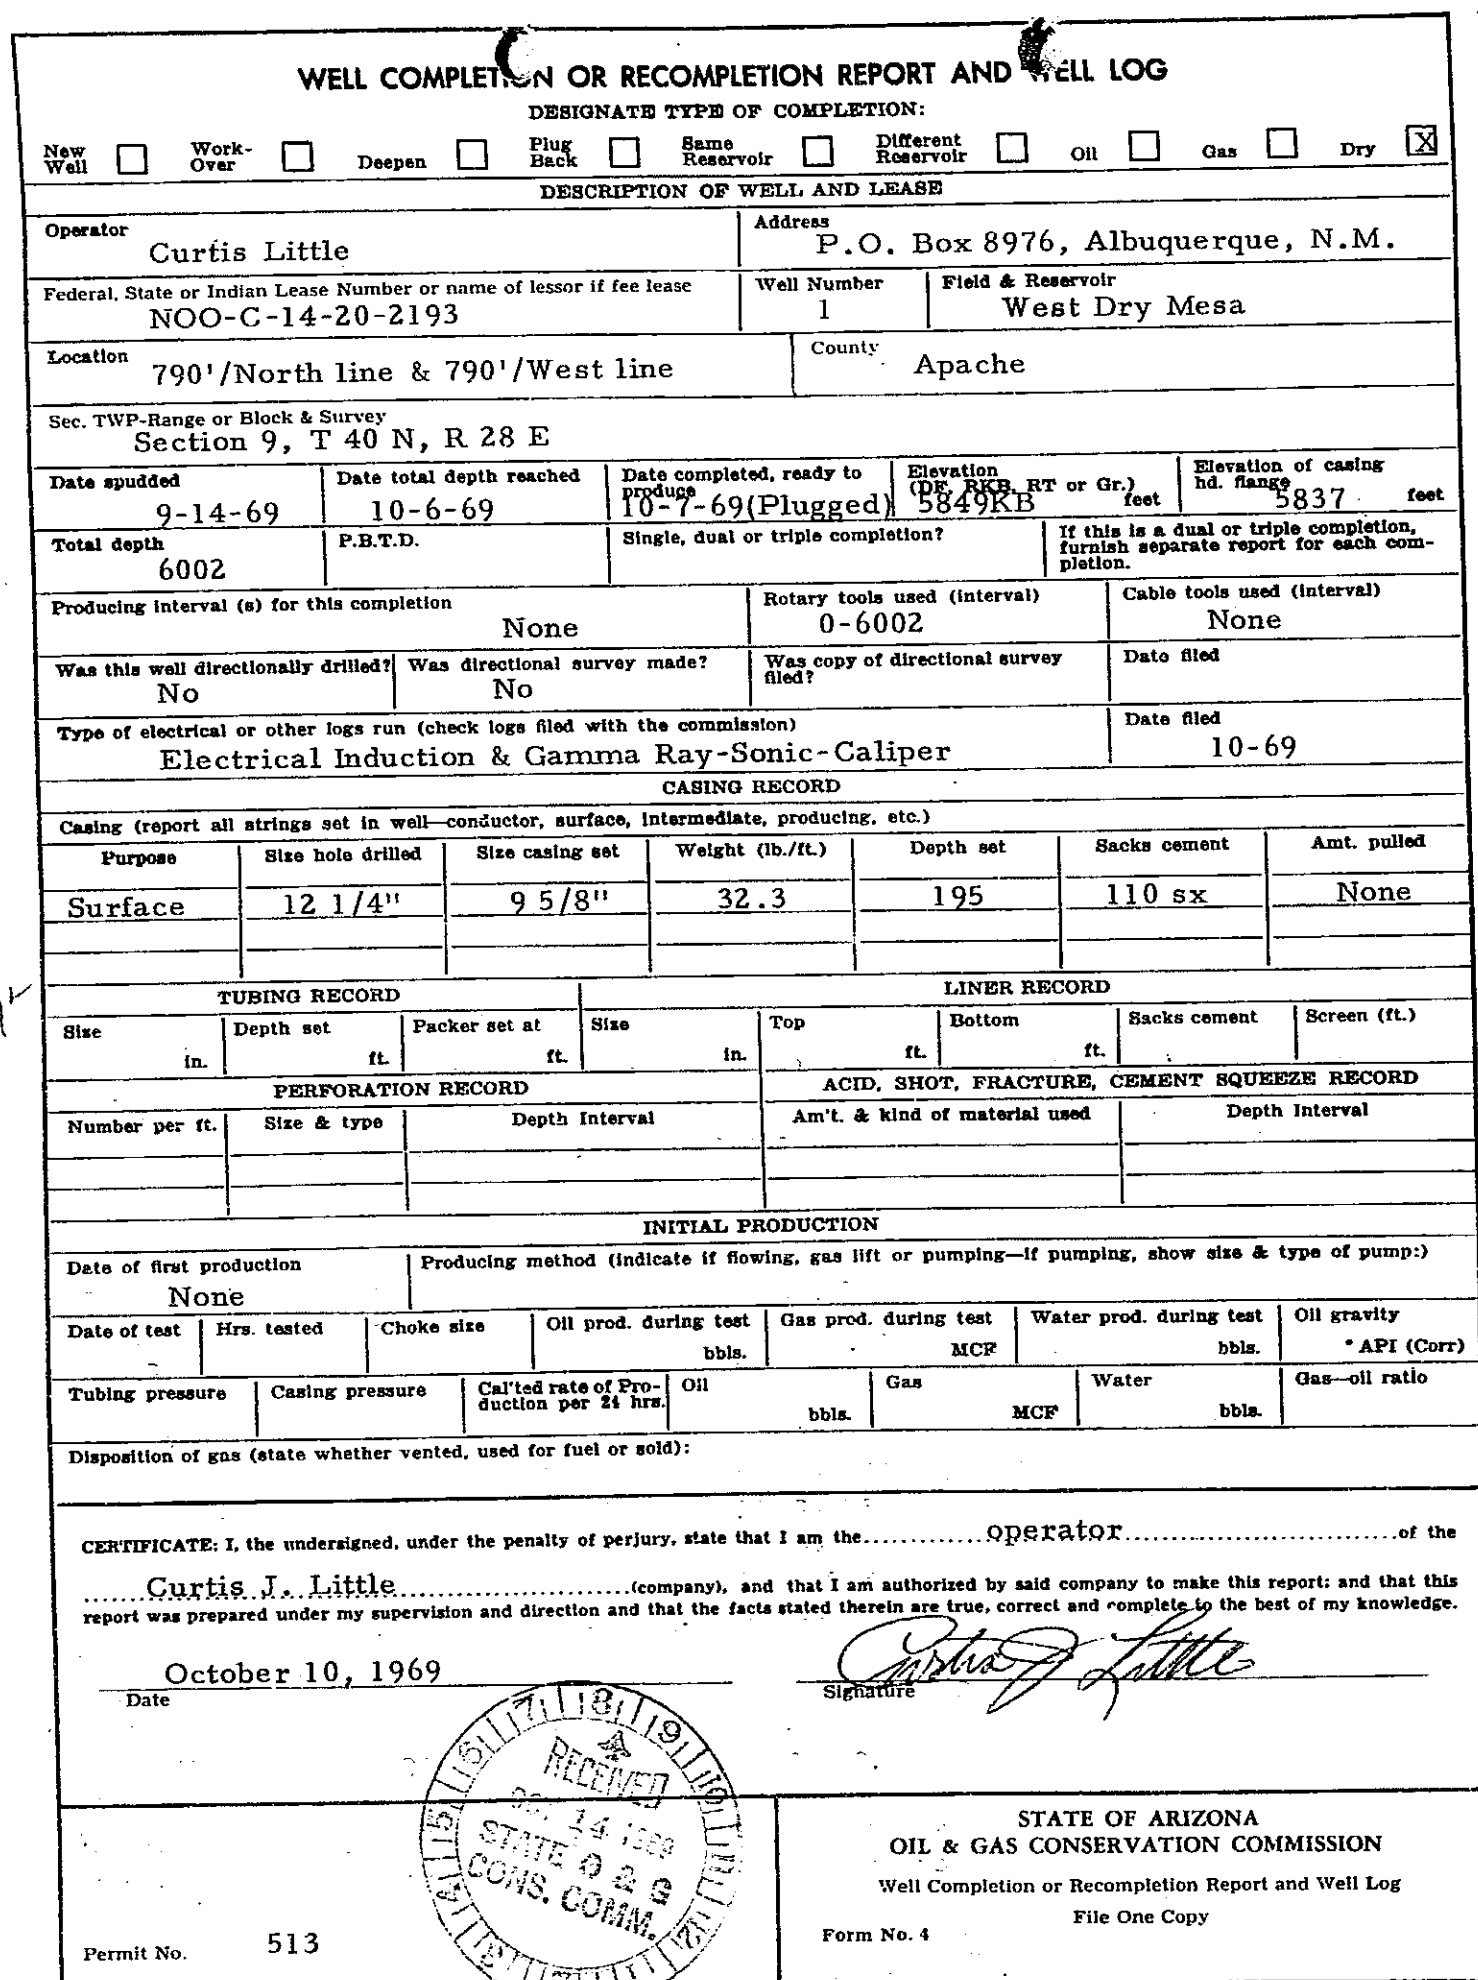 WELL COMPLETION OR RECOMPLETION REPORT AND WELL LOG
DESIGNATE TYPE OF COMPLETION:
New Well Work-Over Deepen Plug Back Same Reservoir Different Reservoir Oil Gas Dry X
DESCRIPTION OF WELL AND LEASE
Operator Address
Curtis Little P.O. Box 8976, Albuquerque, N.M.
Federal, State or Indian Lease Number or name of lessor if fee lease Well Number Field & Reservoir
NOO-C-14-20-2193 1 West Dry Mesa
Location County
790'/North line & 790'/West line Apache
Sec. TWP-Range or Block & Survey
Section 9, T 40 N, R 28 E
Date spudded Date total depth reached Date completed, ready to produce Elevation (DF, RKB, RT or Gr.) Elevation of casing hd. flange
9-14-69 10-6-69 10-7-69(Plugged) 5849KB feet 5837 feet
Total depth P.B.T.D. Single, dual or triple completion? If this is a dual or triple completion, furnish separate report for each completion.
6002
Producing interval (s) for this completion Rotary tools used (interval) Cable tools used (interval)
None 0-6002 None
Was this well directionally drilled? Was directional survey made? Was copy of directional survey filed? Date filed
No No
Type of electrical or other logs run (check logs filed with the commission) Date filed
Electrical Induction & Gamma Ray-Sonic-Caliper 10-69
CASING RECORD
Casing (report all strings set in well—conductor, surface, intermediate, producing, etc.)
Purpose Size hole drilled Size casing set Weight (lb./ft.) Depth set Sacks cement Amt. pulled
Surface 12 1/4" 9 5/8" 32.3 195 110 sx None
TUBING RECORD LINER RECORD
Size Depth set Packer set at Size Top Bottom Sacks cement Screen (ft.)
in. ft. ft. in. ft. ft.
PERFORATION RECORD ACID, SHOT, FRACTURE, CEMENT SQUEEZE RECORD
Number per ft. Size & type Depth Interval Am't. & kind of material used Depth Interval
INITIAL PRODUCTION
Date of first production Producing method (indicate if flowing, gas lift or pumping—if pumping, show size & type of pump:)
None
Date of test Hrs. tested Choke size Oil prod. during test Gas prod. during test Water prod. during test Oil gravity
bbls. MCF bbls. ° API (Corr)
Tubing pressure Casing pressure Cal'ted rate of Production per 24 hrs. Oil Gas Water Gas—oil ratio
bbls. MCF bbls.
Disposition of gas (state whether vented, used for fuel or sold):
CERTIFICATE: I, the undersigned, under the penalty of perjury, state that I am the operator of the
Curtis J. Little (company), and that I am authorized by said company to make this report; and that this
report was prepared under my supervision and direction and that the facts stated therein are true, correct and complete to the best of my knowledge.
October 10, 1969 Curtis J Little
Date Signature
RECEIVED
14
STATE O & G
CONS. COMM.
STATE OF ARIZONA
OIL & GAS CONSERVATION COMMISSION
Well Completion or Recompletion Report and Well Log
File One Copy
Form No. 4
Permit No. 513